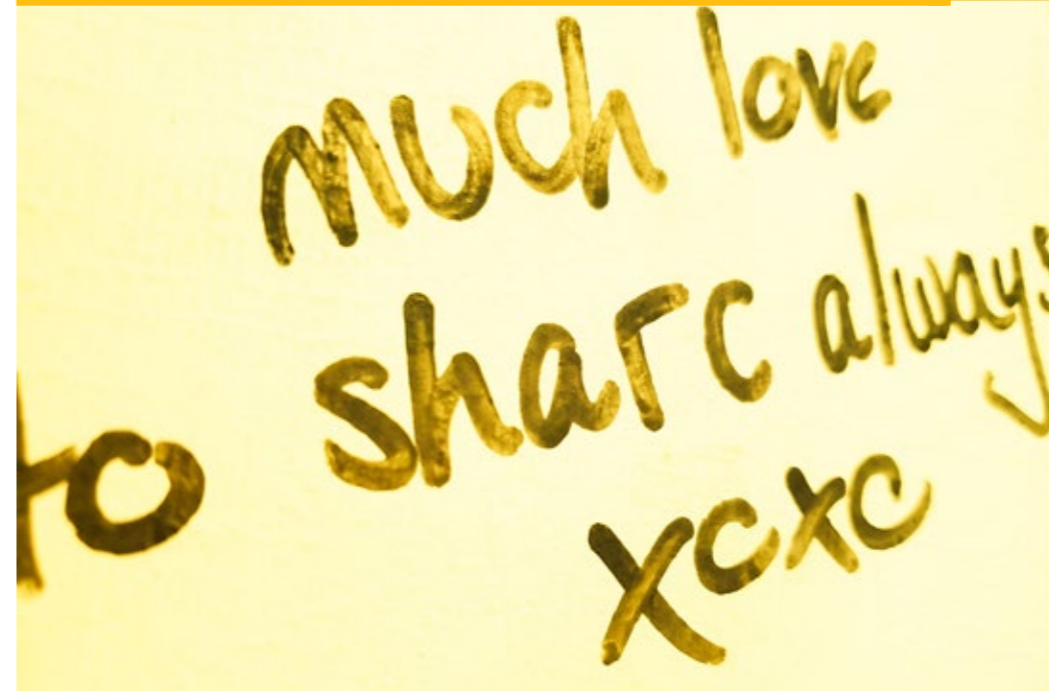 much love
to sharc always
xcxc